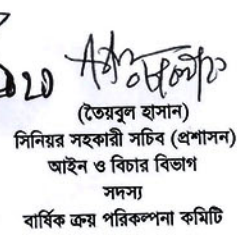 (তৈয়বুল হাসান)
সিনিয়র সহকারী সচিব (প্রশাসন)
আইন ও বিচার বিভাগ
সদস্য
বার্ষিক ক্রয় পরিকল্পনা কমিটি